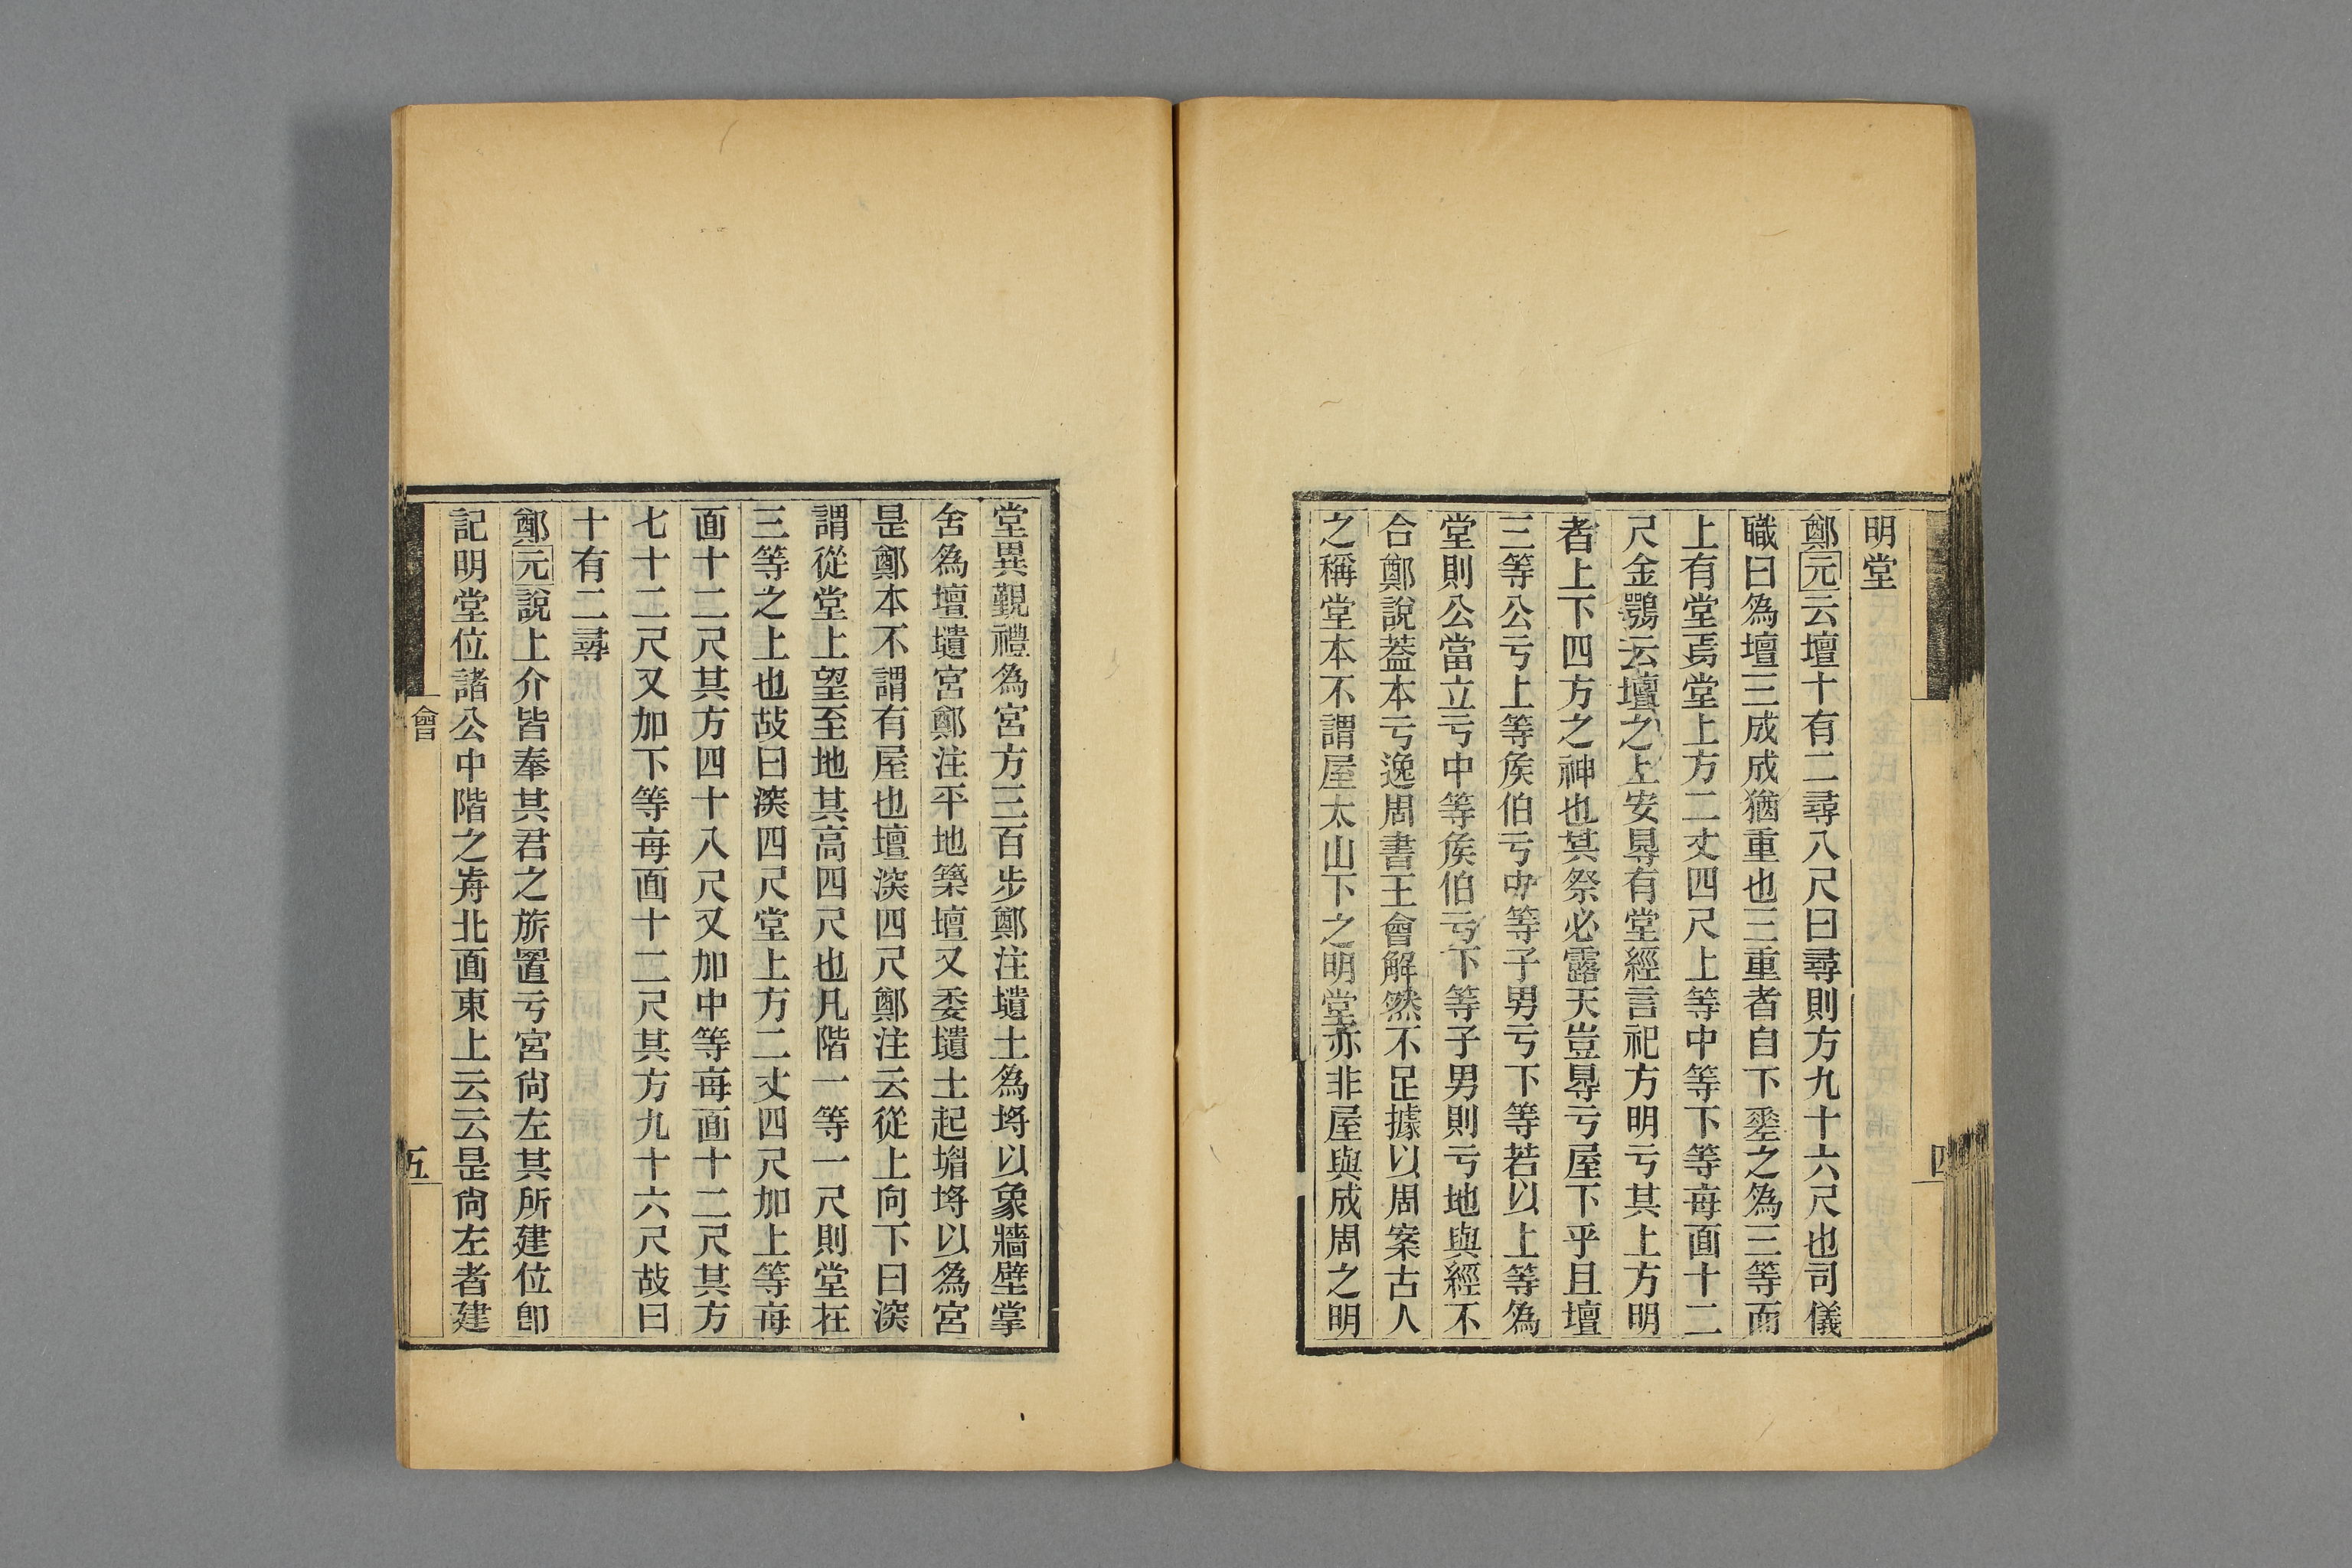 明堂
鄭元云壇十有二尋八尺曰尋則方九十六尺也司儀
職曰爲壇三成成猶重也三重者自下㘸之爲三等而
上有堂焉堂上方二丈四尺上等中等下等每面十二
尺金鶚云壇之上安㝵有堂經言祀方明亏其上方明
者上下四方之神也其祭必露天豈㝵亏屋下乎且壇
三等公亏上等矦伯亏中等子男亏下等若以上等爲
堂則公當立亏中等矦伯亏下等子男則亏地與經不
合鄭說蓋本亏逸周書王會解然不足據以周案古人
之稱堂本不謂屋太山下之明堂亦非屋與成周之明
四
堂異覲禮爲宮方三百步鄭注壝土爲埓以象牆壁掌
舍爲壇壝宮鄭注平地築壇又委壝土起堳埓以爲宮
是鄭本不謂有屋也壇湥四尺鄭注云從上向下曰湥
謂從堂上望至地其高四尺也凡階一等一尺則堂在
三等之上也故曰湥四尺堂上方二丈四尺加上等每
面十二尺其方四十八尺又加中等每面十二尺其方
七十二尺又加下等每面十二尺其方九十六尺故曰
十有二尋
鄭元說上介皆奉其君之旂置亏宮尙左其所建位卽
記明堂位諸公中階之歬北面東上云云是尙左者建
會
五